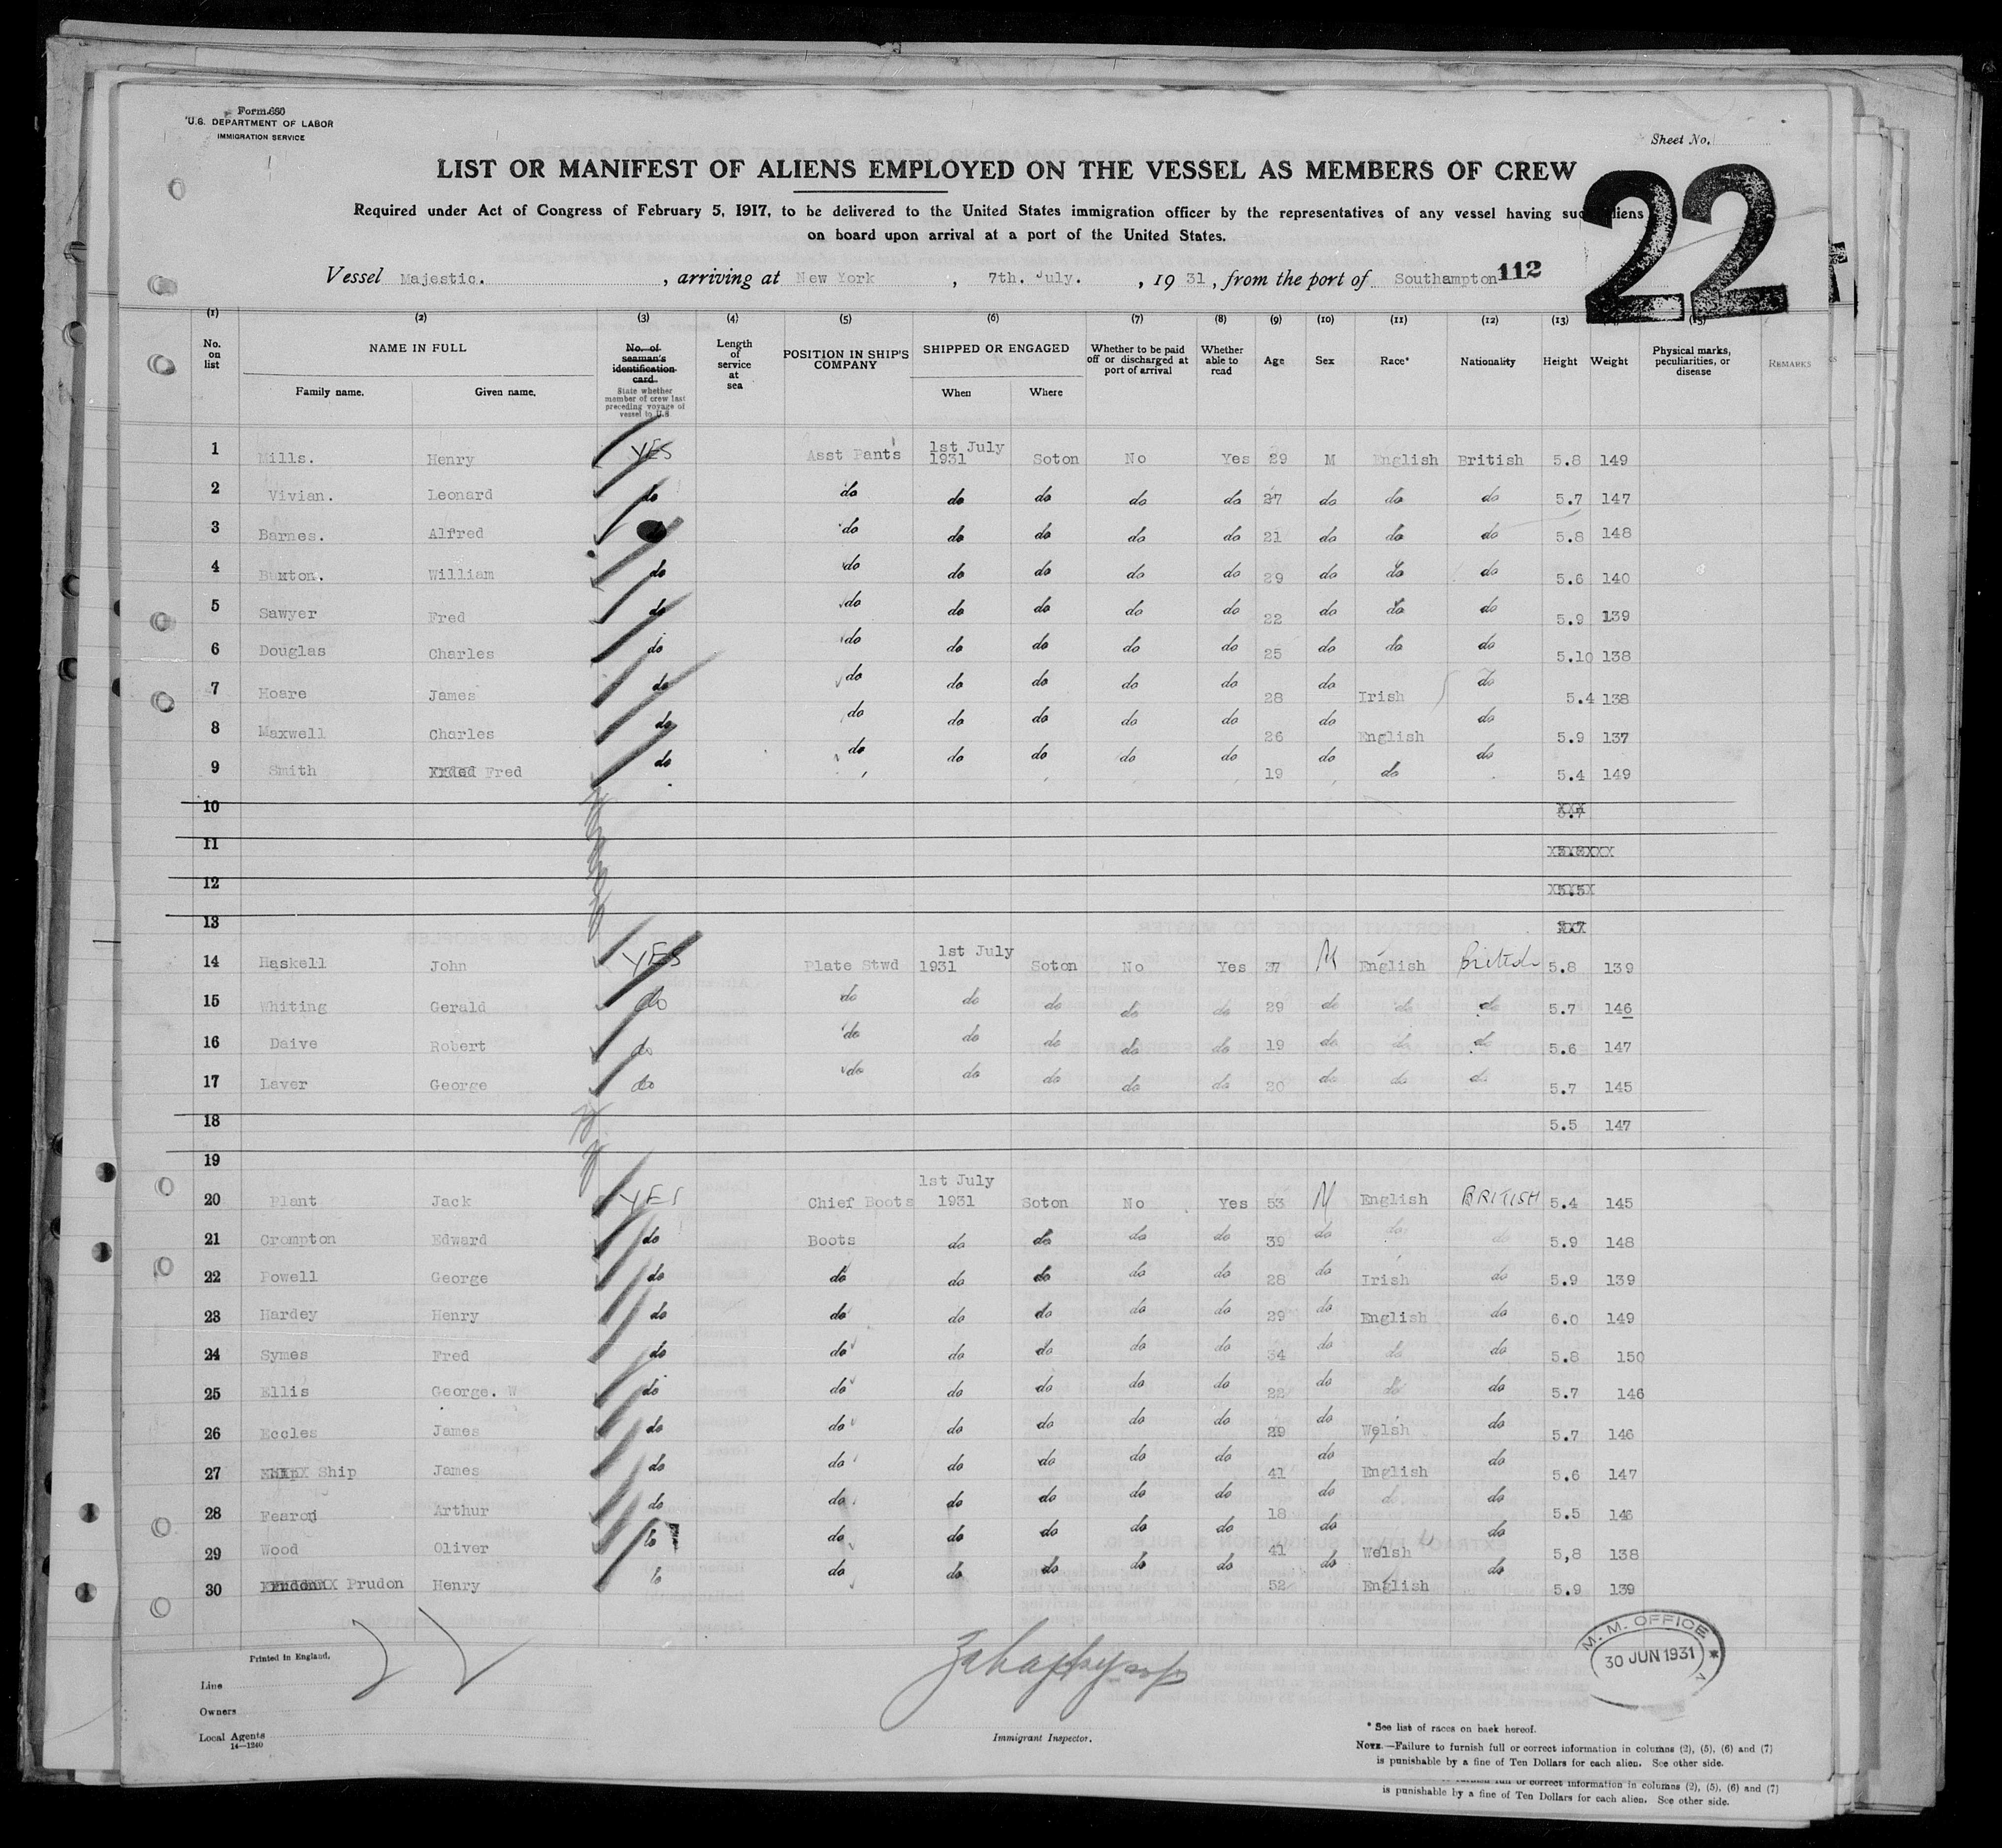 Form 680
U.S. DEPARTMENT OF LABOR
IMMIGRATION SERVICE
Sheet No.
22
LIST OR MANIFEST OF ALIENS EMPLOYED ON THE VESSEL AS MEMBERS OF CREW
Required under Act of Congress of February 5, 1917, to be delivered to the United States immigration officer by the representatives of any vessel having such aliens
on board upon arrival at a port of the United States.
Vessel Majestic. , arriving at New York , 7th. July. , 19 31 , from the port of Southampton 112
(1) (2) (3) (4) (5) (6) (7) (8) (9) (10) (11) (12) (13) (15)
No. on list NAME IN FULL Family name. Given name. No. of seaman's identification card. State whether member of crew last preceding voyage of vessel to U.S Length of service at sea POSITION IN SHIP'S COMPANY SHIPPED OR ENGAGED When Where Whether to be paid off or discharged at port of arrival Whether able to read Age Sex Race* Nationality Height Weight Physical marks, peculiarities, or disease REMARKS
1 Mills. Henry YES Asst Pants 1st July 1931 Soton No Yes 29 M English British 5.8 149
2 Vivian. Leonard do do do do do do 27 do do do 5.7 147
3 Barnes. Alfred do do do do do 21 do do do 5.8 148
4 Buxton. William do do do do do do 29 do do do 5.6 140
5 Sawyer Fred do do do do do do 22 do do do 5.9 139
6 Douglas Charles do do do do do do 25 do do do 5.10 138
7 Hoare James do do do do do do 28 do Irish do 5.4 138
8 Maxwell Charles do do do do do do 26 do English do 5.9 137
9 Smith Fred do do do do do do 19 do do do 5.4 149
10 5.7
11
12 5.5
13 5.7
14 Haskell John YES Plate Stwd 1st July 1931 Soton No Yes 37 M English British 5.8 139
15 Whiting Gerald do do do do do do 29 do do do 5.7 146
16 Daive Robert do do do do do do 19 do do do 5.6 147
17 Laver George do do do do do do 20 do do do 5.7 145
18 5.5 147
19
20 Plant Jack YES Chief Boots 1st July 1931 Soton No Yes 53 M English BRITISH 5.4 145
21 Crompton Edward do Boots do do do do 39 do do do 5.9 148
22 Powell George do do do do do do 28 do Irish do 5.9 139
23 Hardey Henry do do do do do do 29 do English do 6.0 149
24 Symes Fred do do do do do do 34 do do do 5.8 150
25 Ellis George. W do do do do do do 22 do do do 5.7 146
26 Eccles James do do do do do do 29 do Welsh do 5.7 146
27 Ship James do do do do do do 41 do English do 5.6 147
28 Fearon Arthur do do do do do do 18 do do do 5.5 146
29 Wood Oliver do do do do do do 41 do Welsh do 5,8 138
30 Prudon Henry do do do do do do 52 do English do 5.9 139
22
Printed in England.
Line
Owners
Local Agents
14—1240
Immigrant Inspector.
M. M. OFFICE
30 JUN 1931
* See list of races on back hereof.
NOTE.—Failure to furnish full or correct information in columns (2), (5), (6) and (7)
is punishable by a fine of Ten Dollars for each alien. See other side.
furnish full or correct information in columns (2), (5), (6) and (7)
is punishable by a fine of Ten Dollars for each alien. See other side.